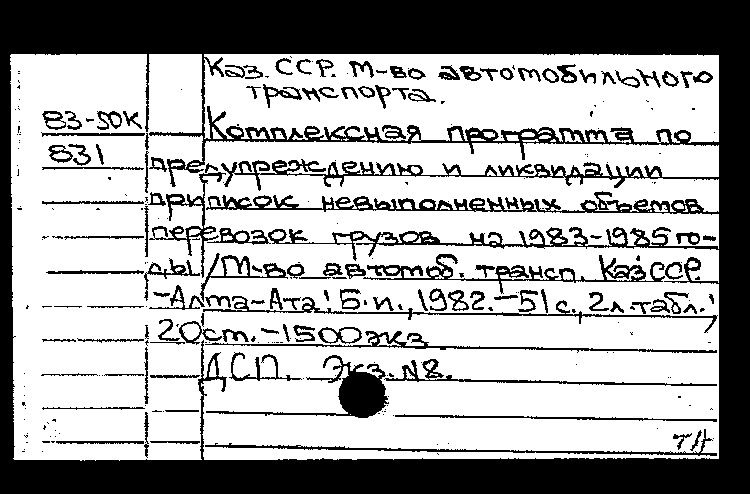 Каз. ССР. М-во автомобильного
транспорта.
83-50К
831
Комплексная программа по
предупреждению и ликвидации
приписок невыполненных объемов
перевозок грузов на 1983-1985 го-
ды / М-во автомоб. трансп. КазССР
-Алма-Ата: Б.и., 1982.-51 с., 2л.табл.;
20см.-1500экз
ДСП. Экз.N8.
ТН